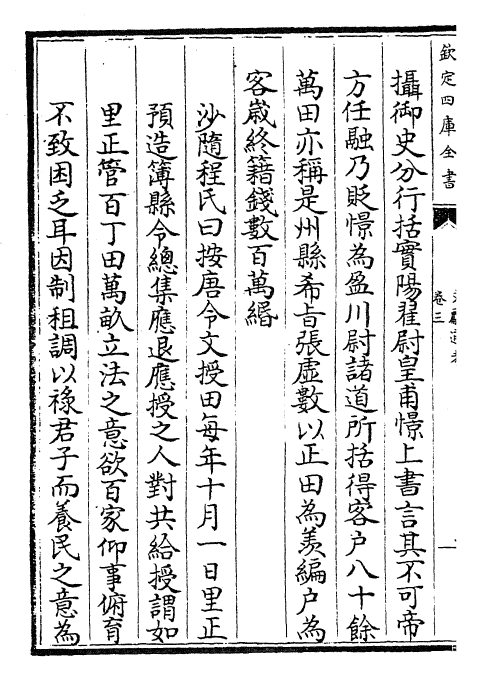 欽定四庫全書
卷三
攝御史分行括實陽翟尉皇甫憬上書言其不可帝
方任融乃貶憬為盈川尉諸道所括得客户八十餘
萬田亦稱是州縣希旨張虚數以正田為羨編户為
客歳終籍錢數百萬緡
沙隨程氏曰按唐令文授田每年十月一日里正
預造簿縣令總集應退應授之人對共給授謂如
里正管百丁田萬畝立法之意欲百家仰事俯育
不致困乏耳因制租調以祿君子而養民之意為